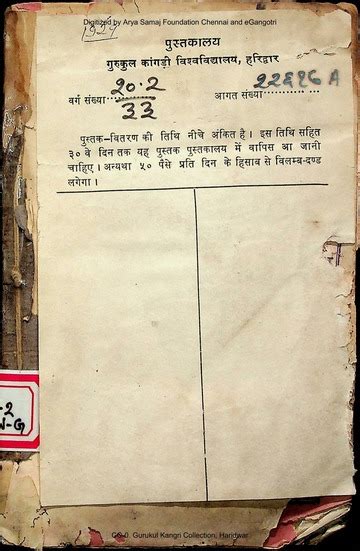 Digitized by Arya Samaj Foundation Chennai and eGangotri
पुस्तकालय
गुरुकुल कांगड़ी विश्वविद्यालय, हरिद्वार
वर्ग संख्या २०.२ आगत संख्या २२६१८ A
३३
पुस्तक-वितरण की तिथि नीचे अंकित है। इस तिथि सहित
३० वे दिन तक यह पुस्तक पुस्तकालय में वापिस आ जानी
चाहिए। अन्यथा ५० पैसे प्रति दिन के हिसाब से विलम्ब-दण्ड
लगेगा।
CC-0. Gurukul Kangri Collection, Haridwar